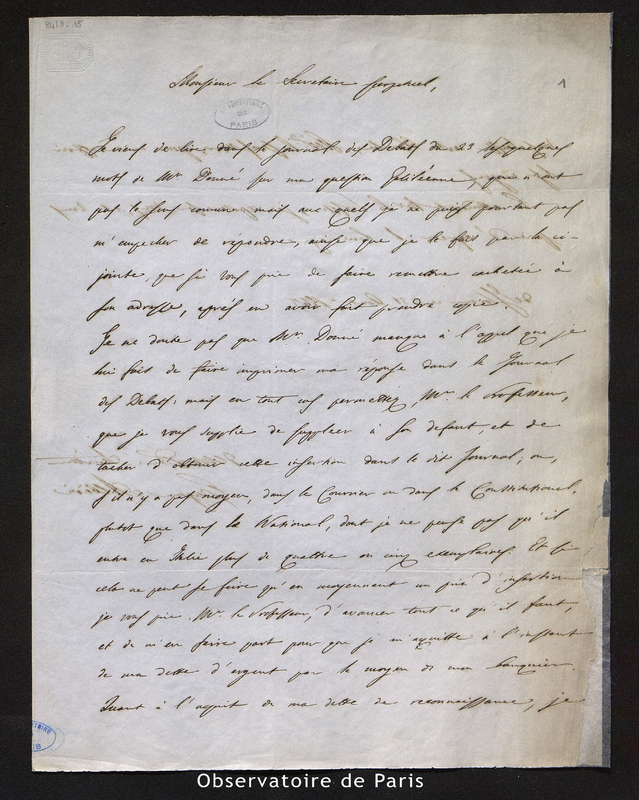 8419-15
1
Monsieur le Secretaire perpetuel,
OBSERVATOIRE DE PARIS
Je viens de lire dans le Journal des Debats du 23 quelques
mots de Mr. Donné sur ma question Galiléenne, qui n'ont
pas le sens commun mais aux quels je ne puis pourtant pas
m'empecher de répondre, ainsi que je le fais par la ci-
jointe, que je vous prie de faire remettre cachetée à
son adresse, aprés en avoir fait prendre copie.
Je ne doute pas que Mr. Donné manque à l'appel que je
lui fais de faire imprimer ma réponse dans le Journal
des Debats: mais en tout cas permettez, Mr. le Professeur,
que je vous supplie de suppléer à son defaut, et de
tacher d'obtenir cette insertion dans le dit Journal, ou,
s'il n'y a pas moyen, dans le Courrier ou dans le Constitutionel,
plutot que dans le National, dont je ne pense pas qu'il
entre en Italie plus de quattre ou cinq exemplaires. Et si
cela ne peut se faire qu'en moyennant un prix d'insertion
je vous prie, Mr. le Professeur, d'avancer tout ce qu'il faut,
et de m'en faire part pour que je m'acquitte à l'instant
de ma dette d'argent par le moyen de mon banquier.
Quant à l'acquit de ma dette de reconnaissance, je
Observatoire de Paris